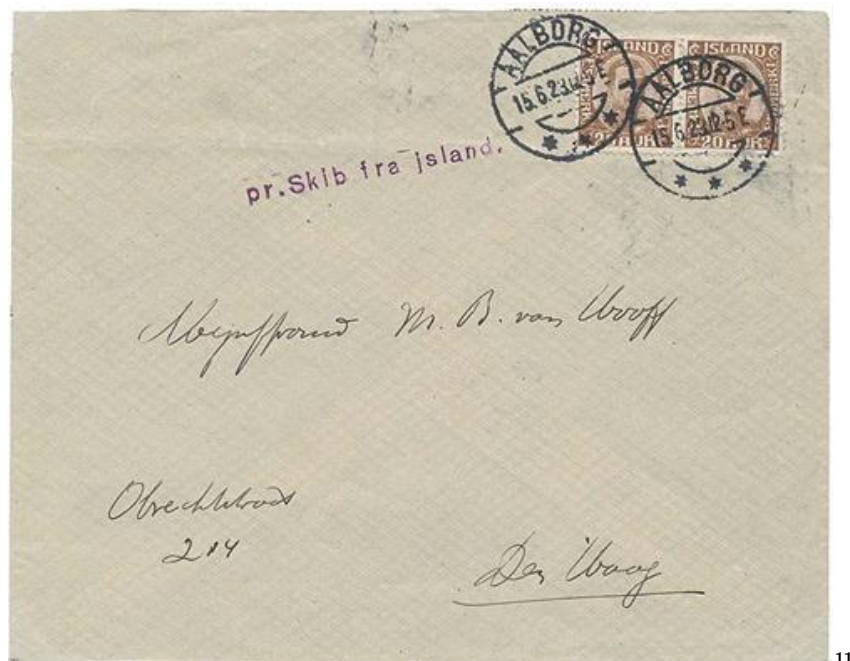 AALBORG
15.6.23.12-5 E
ISLAND
20 AUR
AALBORG
15.6.23.12-5 E
ISLAND
20 AUR
pr. Skib fra jsland.
M. B. van
Obrechtstraat
204
Den Haag
11